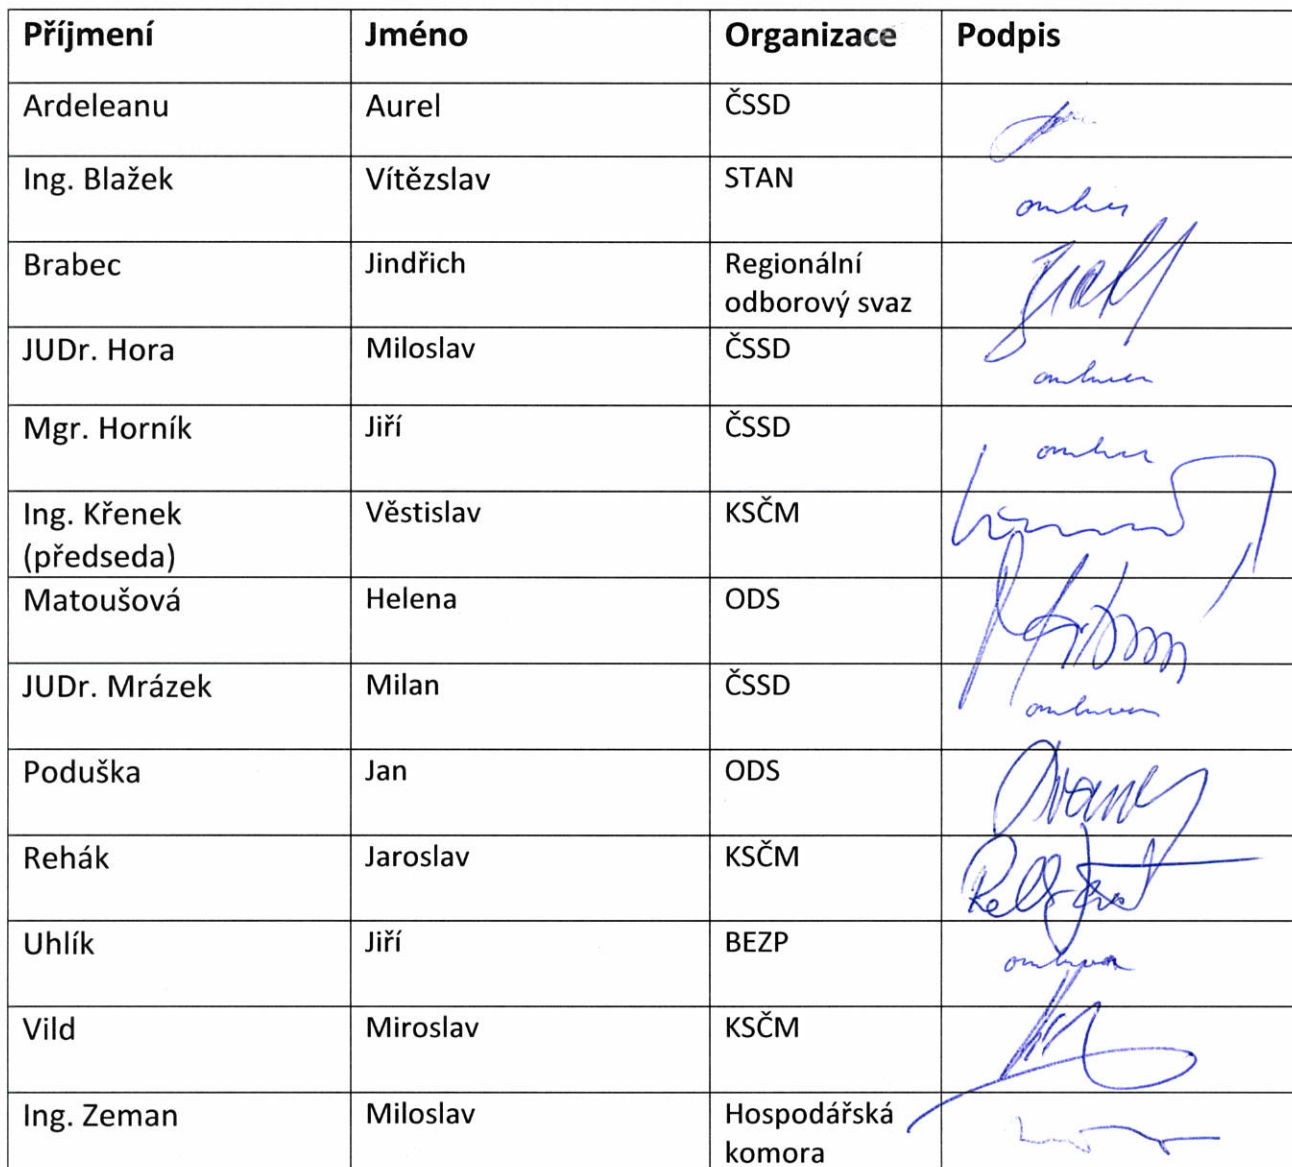 Příjmení Jméno Organizace Podpis
Ardeleanu Aurel ČSSD
Ing. Blažek Vítězslav STAN
Brabec Jindřich Regionální
odborový svaz
JUDr. Hora Miloslav ČSSD
Mgr. Horník Jiří ČSSD
Ing. Křenek Věstislav KSČM
(předseda)
Matoušová Helena ODS
JUDr. Mrázek Milan ČSSD
Poduška Jan ODS
Rehák Jaroslav KSČM
Uhlík Jiří BEZP
Vild Miroslav KSČM
Ing. Zeman Miloslav Hospodářská
komora